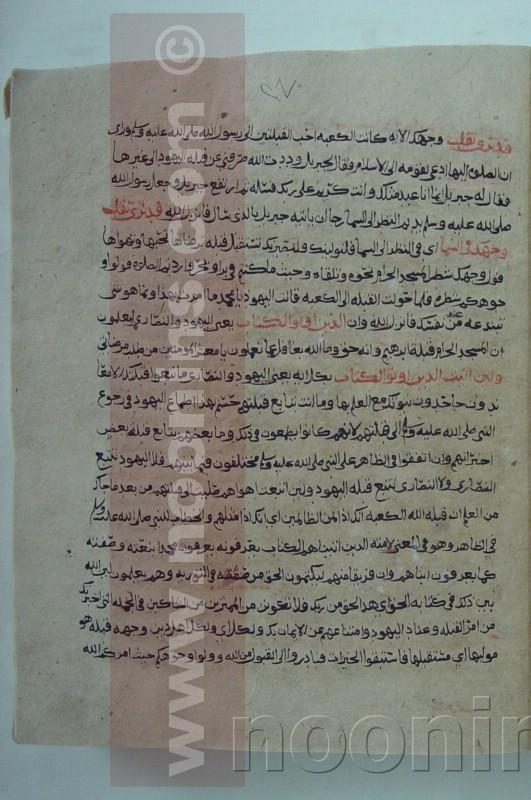 قد نرى تقلب وجهك الآية كانت الكعبة احب القبلتين الى رسول الله صلى الله عليه وسلم وراى
ان الصلوة اليها ادعى لقومه الى الاسلام فقال لجبريل وددت ان الله صرفني عن قبلة اليهود الى غيرها
فقال له جبريل انما انا عبد مثلك وانت كريم على ربك فسله ثم ارتفع جبريل وجعل رسول الله
صلى الله عليه وسلم يديم النظر الى السما رجا ان ياتيه جبريل بالذي سال فانزل الله قد نرى تقلب
وجهك في السما اى في النظر الى السما فلنولينك ولنصيرنك تستقبل قبلة ترضاها تحبها وتهواها
فول وجهك شطر المسجد الحرام نحوه وتلقاءه وحيث ما كنتم في بر او بحر واردتم الصلوة فولوا و
جوهكم شطره فلما حولت القبلة الى الكعبة قالت اليهود يا محمد ما امرت بهذا وانما هو شي
تبتدعه من نفسك فانزل الله وان الذين اوتوا الكتاب يعنى اليهود والنصارى ليعلمون
ان المسجد الحرام قبلة ابرهيم وانه حق وما الله بغافل عما تعملون يا معشر المومنين من طلب مرضاتى
ولئن اتيت الذين اوتوا الكتاب بكل اية يعنى اليهود والنصارى ما تبعوا قبلتك لانهم معا
ندون جاحدون نبوتك مع العلم بها وما انت بتابع قبلتهم حسم بهذا اطماع اليهود في رجوع
النبي صلى الله عليه وسلم الى قبلتهم لانهم كانوا يطمعون في ذلك وما بعضهم بتابع قبلة بعض
اخبر انهم وان اتفقوا في الظاهر على النبي صلى الله عليه وسلم مختلفون فيما بينهم فلا اليهود تتبع
النصارى ولا النصارى تتبع قبلة اليهود ولئن اتبعت اهواهم صليت الى قبلتهم من بعد ما جاك
من العلم ان قبلة الله الكعبة انك اذا لمن الظالمين اى انك اذا مثلهم والخطاب للنبي صلى الله عليه وسلم
في الظاهر وهو في المعنى لامته الذين اتيناهم الكتاب يعرفونه يعرفون محمدا بنعته وصفته
كما يعرفون ابناهم وان فريقا منهم ليكتمون الحق من صفته في التورية وهم يعلمون لان الله
بين ذلك في كتابه الحق اى هذا الحق من ربك فلا تكونن من الممترين من الشاكين في الجملة التى اخبرتك
من امر القبلة وعناد اليهود وامتناعهم عن الايمان بك ولكل اى ولكل اهل دين وجهة قبلة هو
موليها اى مستقبلها فاستبقوا الخيرات فبادروا الى القبول من الله وولوا وجوهكم حيث امركم الله
www.noorlib.com ©